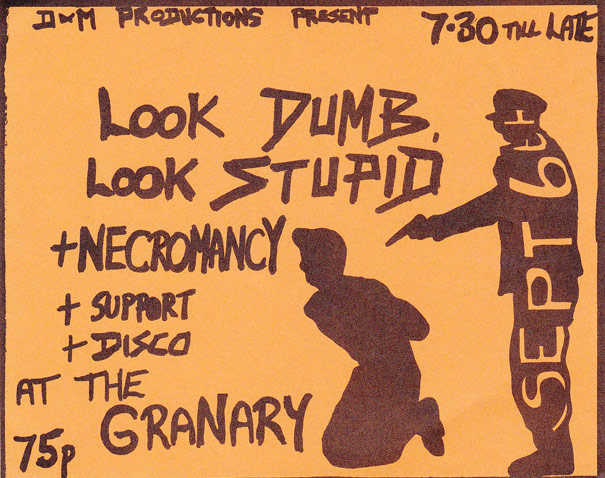 D+M PRODUCTIONS PRESENT
7.30 TILL LATE
LOOK DUMB,
LOOK STUPID
+ NECROMANCY
+ SUPPORT
+ DISCO
AT THE
GRANARY
75p
SEPT 6TH